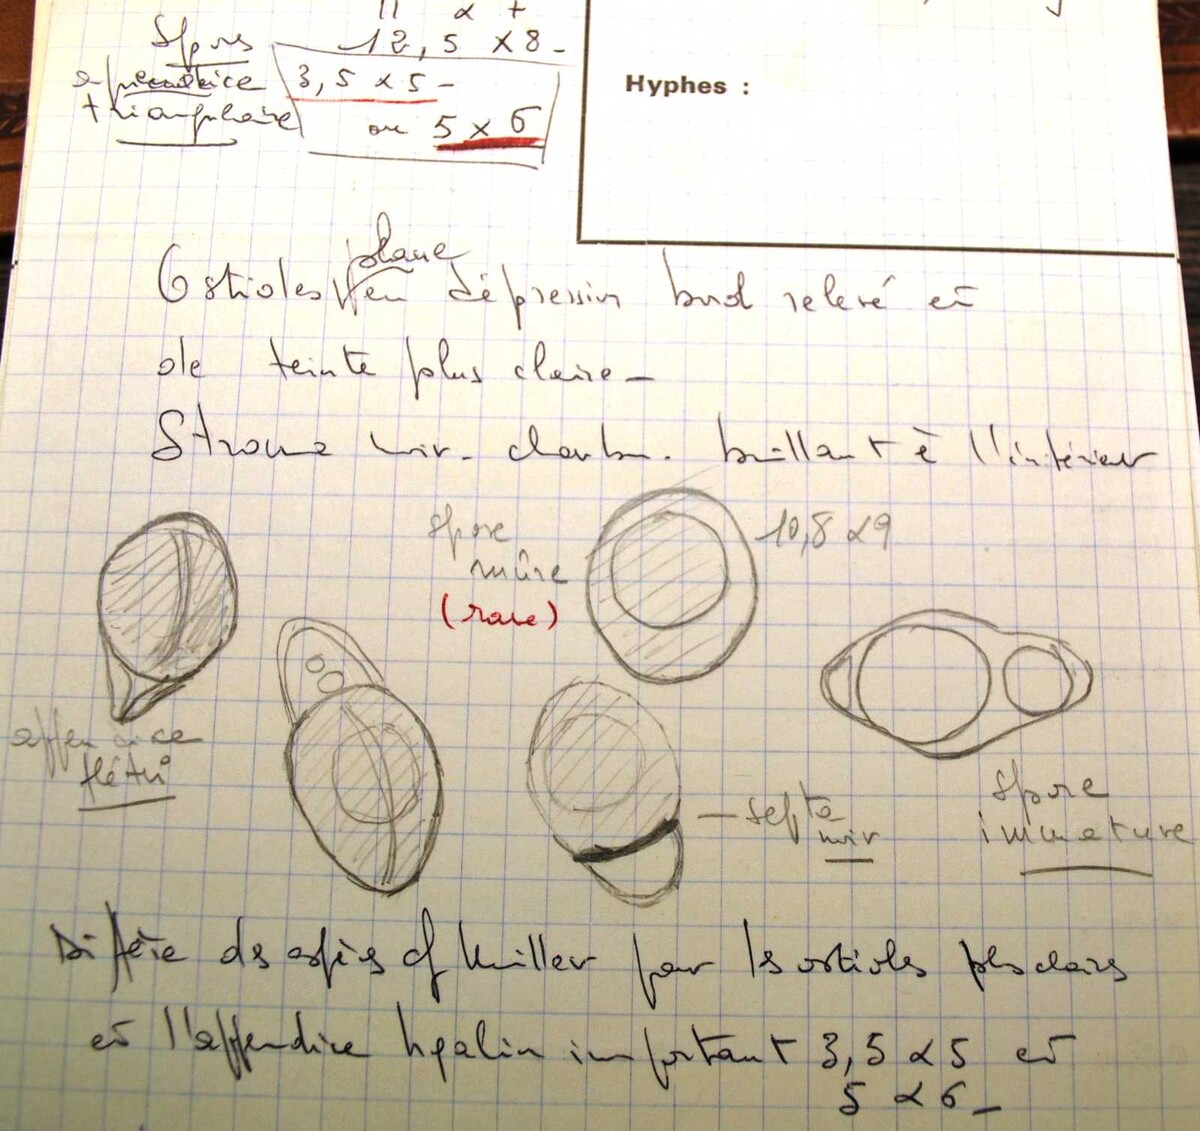 11 x +
Spores 12,5 x 8 -
appendice 3,5 x 5 -
triangulaire ou 5 x 6
Hyphes :
plane
Ostioles en dépression bord relevé et
de teinte plus claire -
Stroma noir. charbon. brillant à l'intérieur
spore
mûre
(rare)
10,8 x 9
appendice
flétri
septa
noir
spore
immature
Diffère ds espèces of Miller par ls ostioles plus clairs
et l'appendice hyalin important 3,5 x 5 et
5 x 6 -